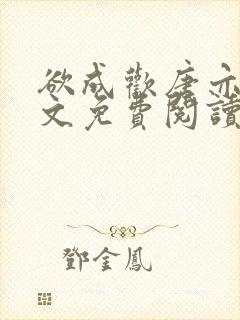 欲成歡唐亦
文免費閱讀
鄧金鳳